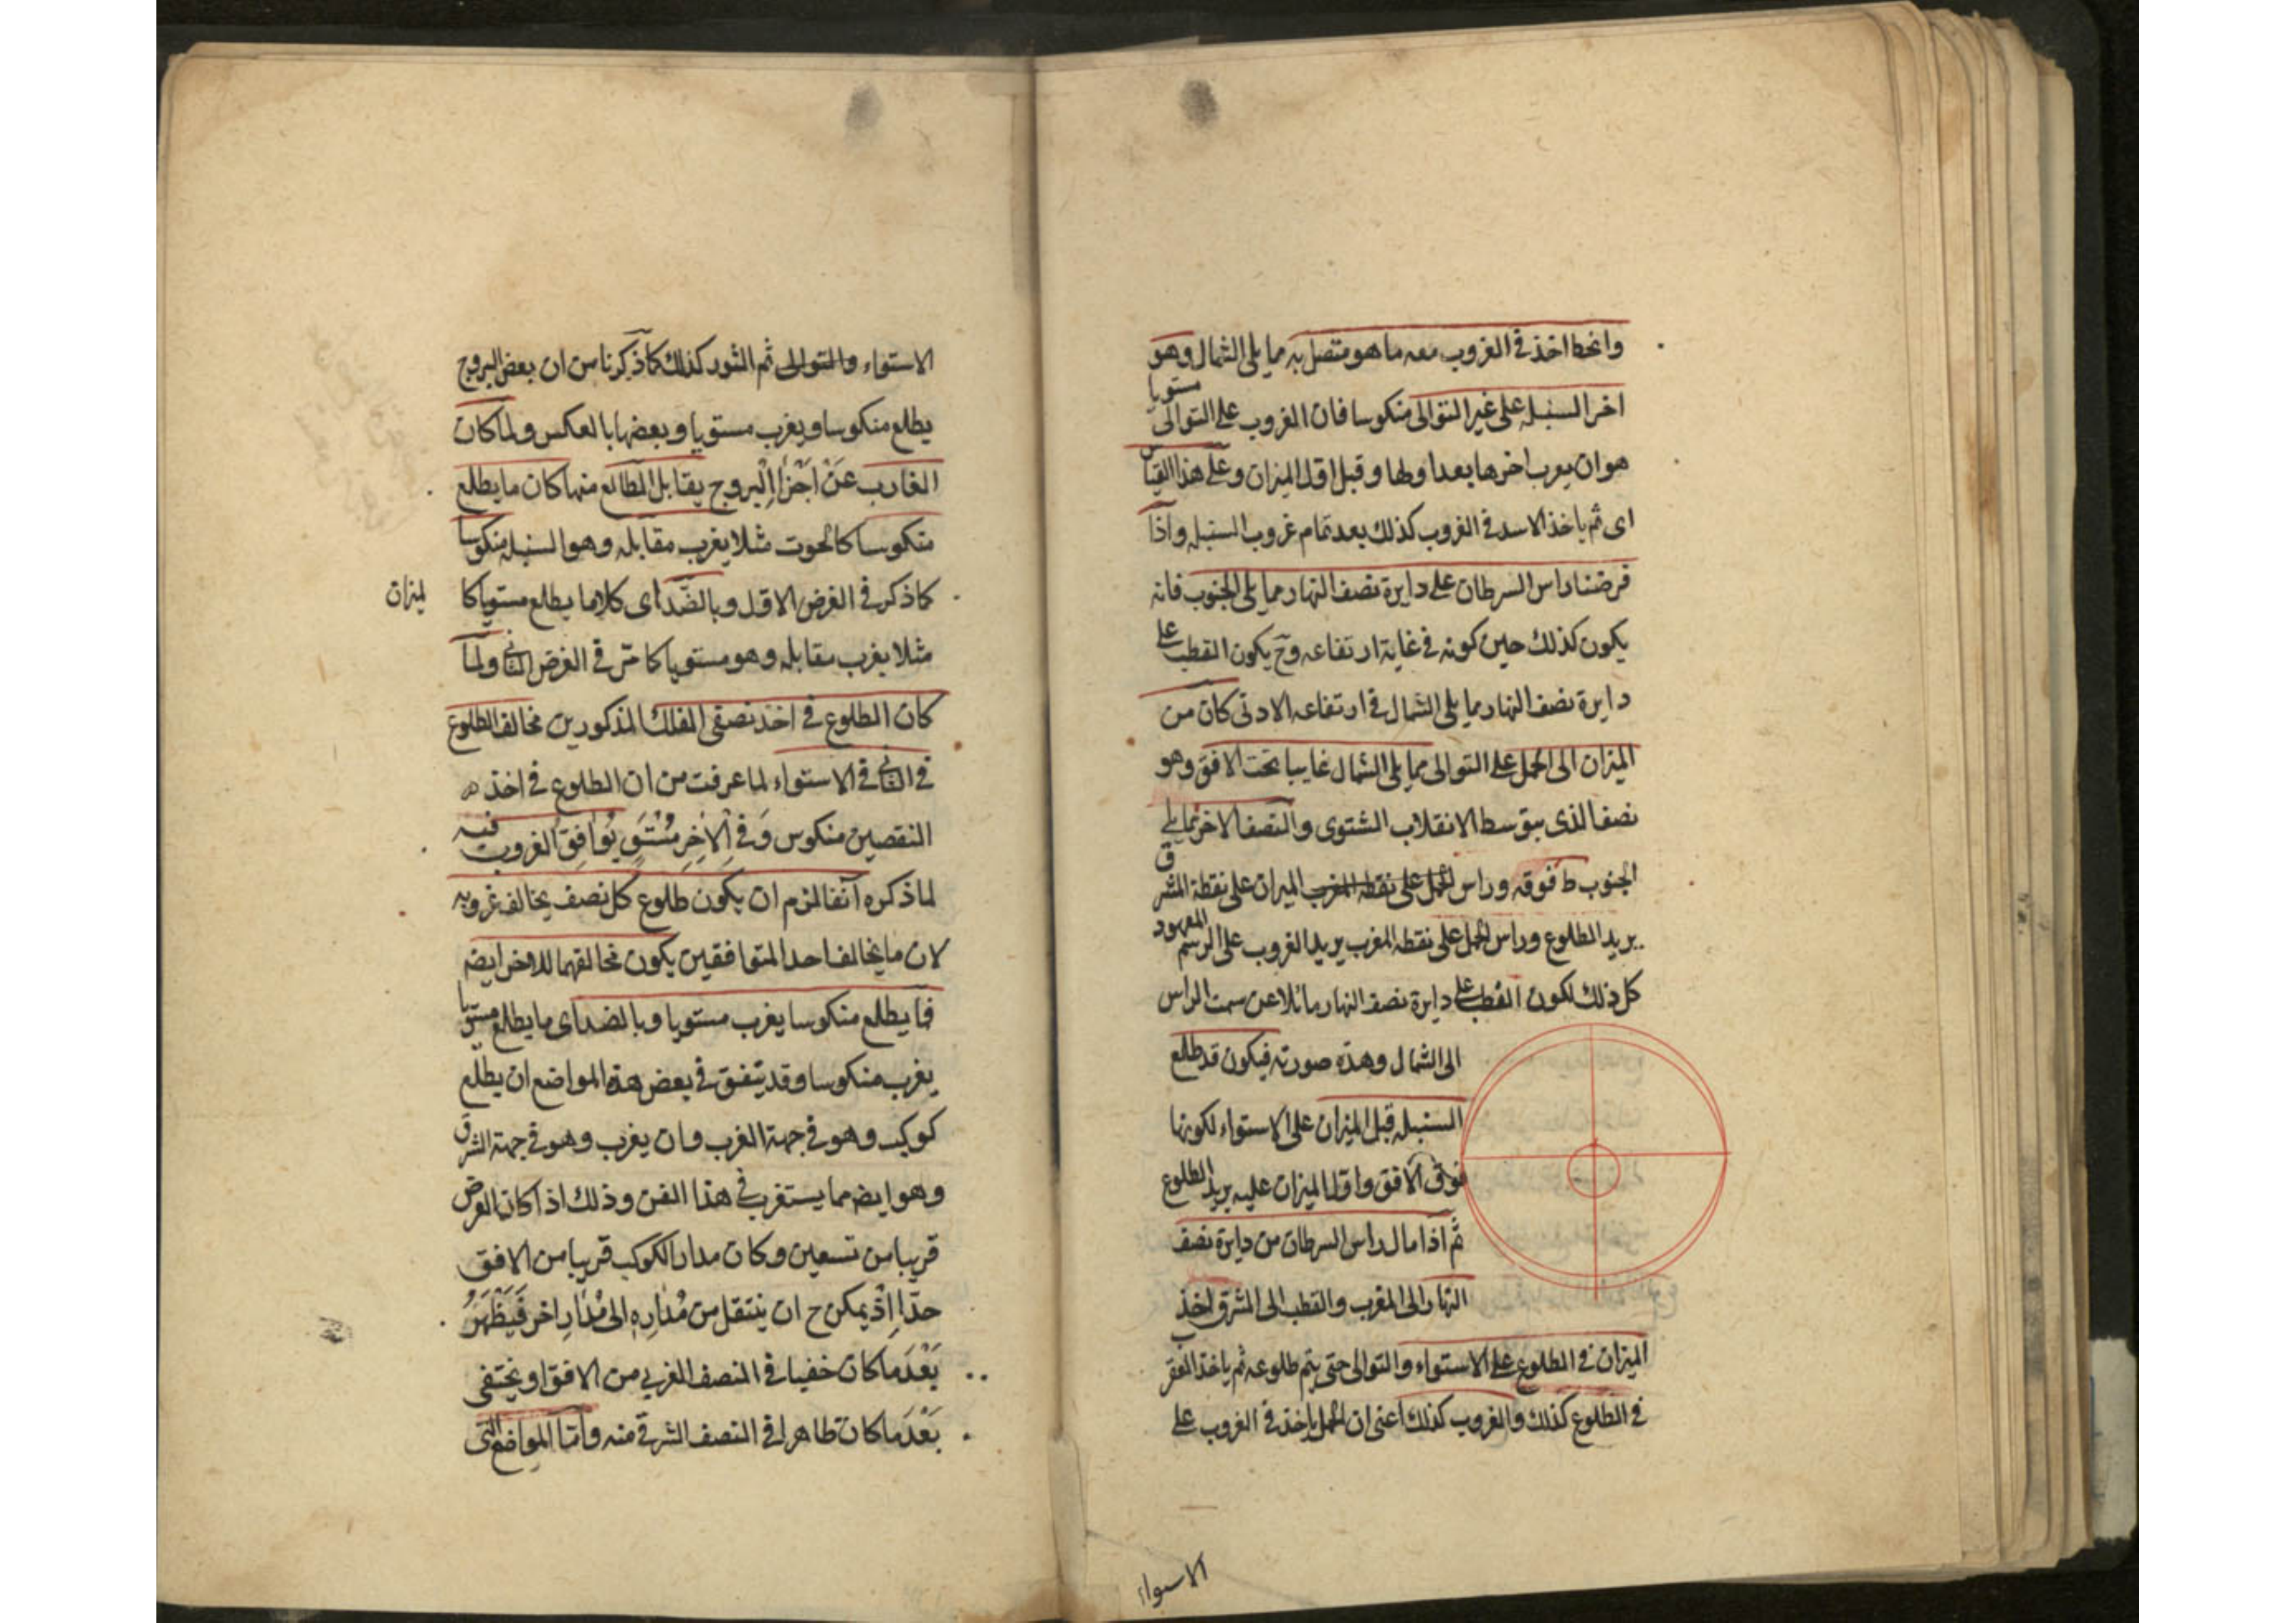 وانحط اخذ في الغروب معه ما هو متصل به مما يلى الشمال وهو
اخر السنبله على غير التوالى منكوسا فان الغروب على التوالى مستويا
هو ان يغرب اخرها بعد اولها وقبل اول الميزان وعلى هذا القياس
اى ثم ياخذ الاسد في الغروب كذلك بعد تمام غروب السنبله واذا
فرضنا راس السرطان على دايرة نصف النهار مما يلى الجنوب فانه
يكون كذلك حين كونه في غاية ارتفاعه وح يكون القطب على
دايرة نصف النهار مما يلى الشمال في ارتفاعه الادنى كان من
الميزان الى الحمل على التوالى مما يلى الشمال غايبا تحت الافق وهو
نصف الذى يتوسط الانقلاب الشتوى والنصف الاخر مما يلى
الجنوب ط فوقه وراس الحمل على نقطه المغرب الميزان على نقطة المشرق
يريد الطلوع وراس الحمل على نقطه المغرب يريد الغروب على الرسم المعهود
كل ذلك لكون القطب على دايرة نصف النهار مائلا عن سمت الراس
الى الشمال وهذه صورته فيكون قد طلع
السنبله قبل الميزان على الاستواء لكونها
فوق الافق واول الميزان عليه يريد الطلوع
ثم اذا مال راس السرطان من دايرة نصف
النهار الى المغرب والقطب الى المشرق اخذ
الميزان في الطلوع على الاستواء والتوالى حتى يتم طلوعه ثم ياخذ العقرب
في الطلوع كذلك والغروب كذلك اعنى ان الحمل ياخذ في الغروب على
الاسواء
الاستواء والتوالى ثم الثور كذلك كما ذكرنا من ان بعض البروج
يطلع منكوسا ويغرب مستويا وبعضها بالعكس ولما كان
الغارب عَنْ اَجْزَاءِ البروج يقابل الطالع منها كان ما يطلع
منكوسا كالحوت مثلا يغرب مقابله وهو السنبله منكوسا
كما ذكر في الفرض الاول وبالضّد اى كلما يطلع مستويا كا
لميزان
مثلا يغرب مقابله وهو مستويا كما مرّ في الفرض الثانى ولما
كان الطلوع في احد نصفى الفلك المذكورين مخالف الطلوع
في الثانى في الاستواء لما عرفت من ان الطلوع في احد
النصفين منكوس وَفي الْاٰخِرِ مُسْتَوٍ يُوَافِقُ الغروب فيه
لما ذكره آنفا لزم ان يكون طلوع كل نصف يخالف غروبه
لان ما يخالف احد المتوافقين يكون مخالفهما للاخر ايضا
فما يطلع منكوسا يغرب مستويا وبالضد اى ما يطلع مستويا
يغرب منكوسا وقد يتفق في بعض هذه المواضع ان يطلع
كوكب وهو في جهة الغرب وان يغرب وهو في جهة الشرق
وهو ايضا مما يستغرب في هذا الفن وذلك اذا كان العرض
قريبا من تسعين وكان مدار الكوكب قريبا من الافق
جدّا اِذْ يمكن ح ان ينتقل من مُدَارِهِ الى مُدَارٍ اخر فَيَظْهَرُ
بَعْدَ ما كان خفيا في النصف الغربي من الافق او يختفى
بَعْدَ ما كان ظاهرا في النصف الشرقى منه وامّا المواضع التى